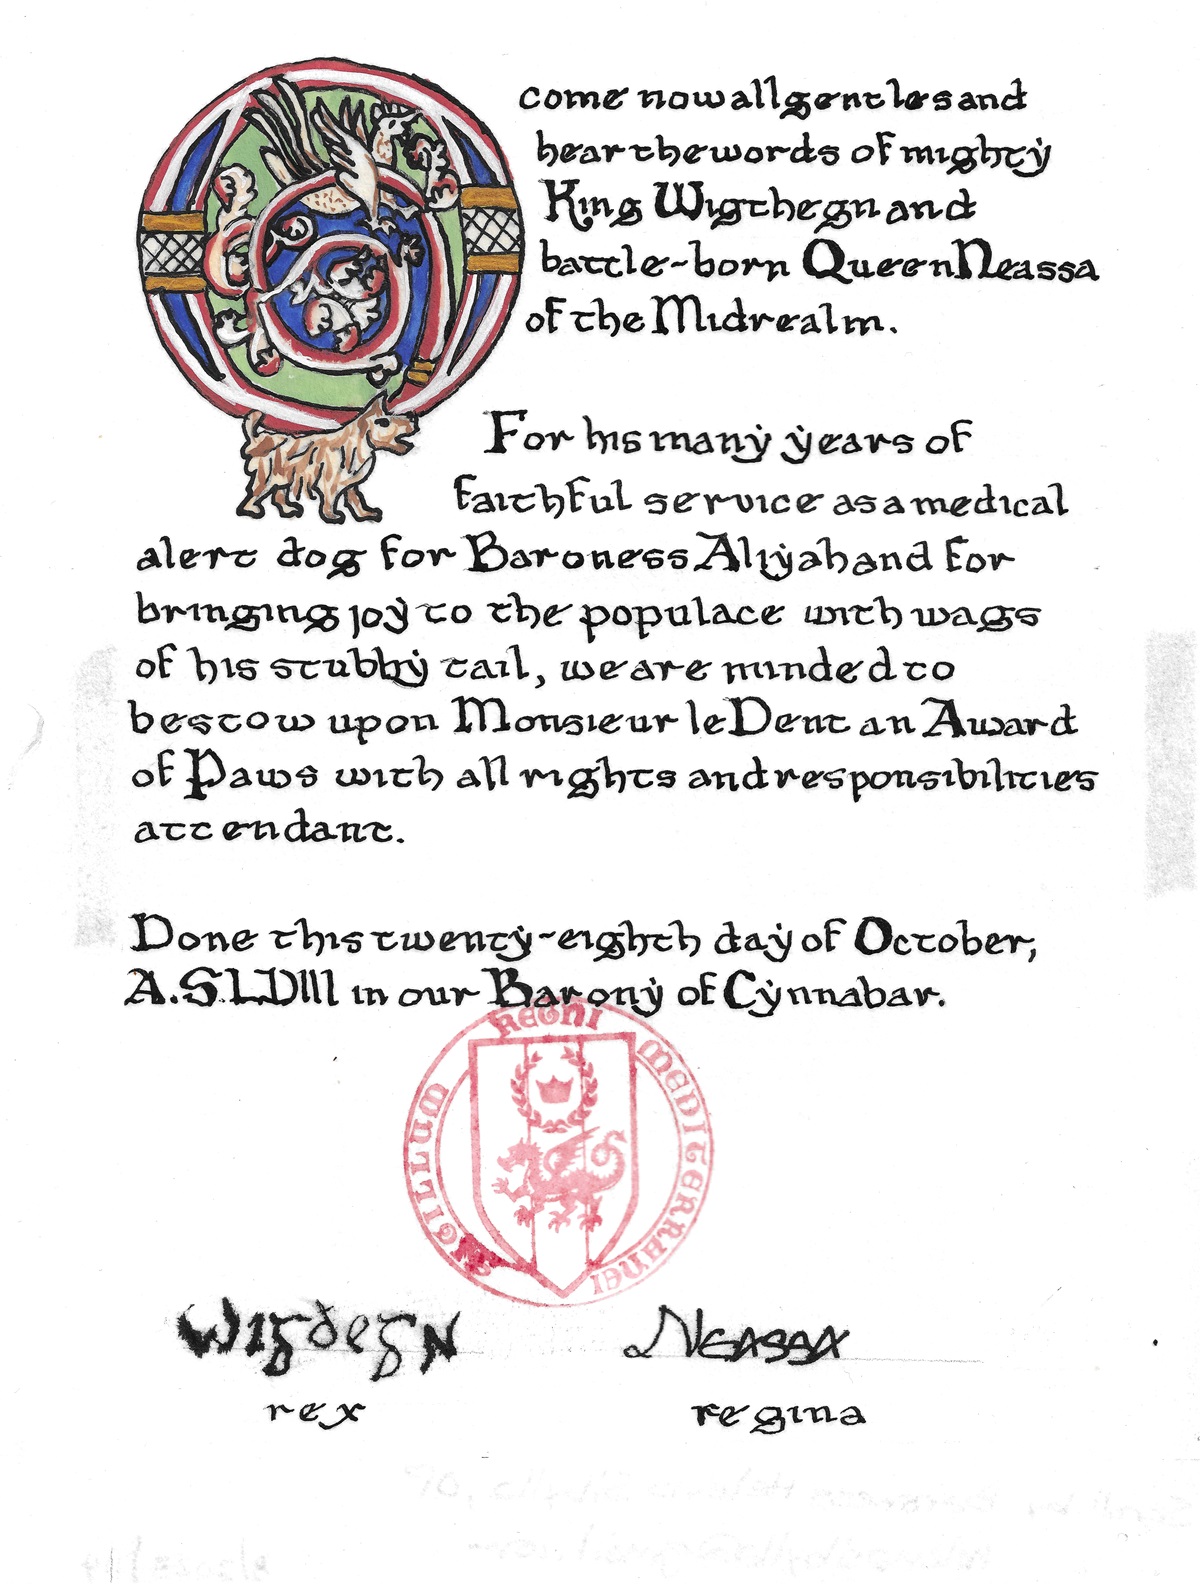 O come now all gentles and
hear the words of mighty
King Wigthegn and
battle-born Queen Neassa
of the Midrealm.
For his many years of
faithful service as a medical
alert dog for Baroness Aliyah and for
bringing joy to the populace with wags
of his stubby tail, we are minded to
bestow upon Monsieur le Dent an Award
of Paws with all rights and responsibilities
attendant.
Done this twenty-eighth day of October,
A.S. LVIII in our Barony of Cynnabar.
SIGILLUM REGNI MEDITERRANEI
Wigðegn
Neassa
rex
regina